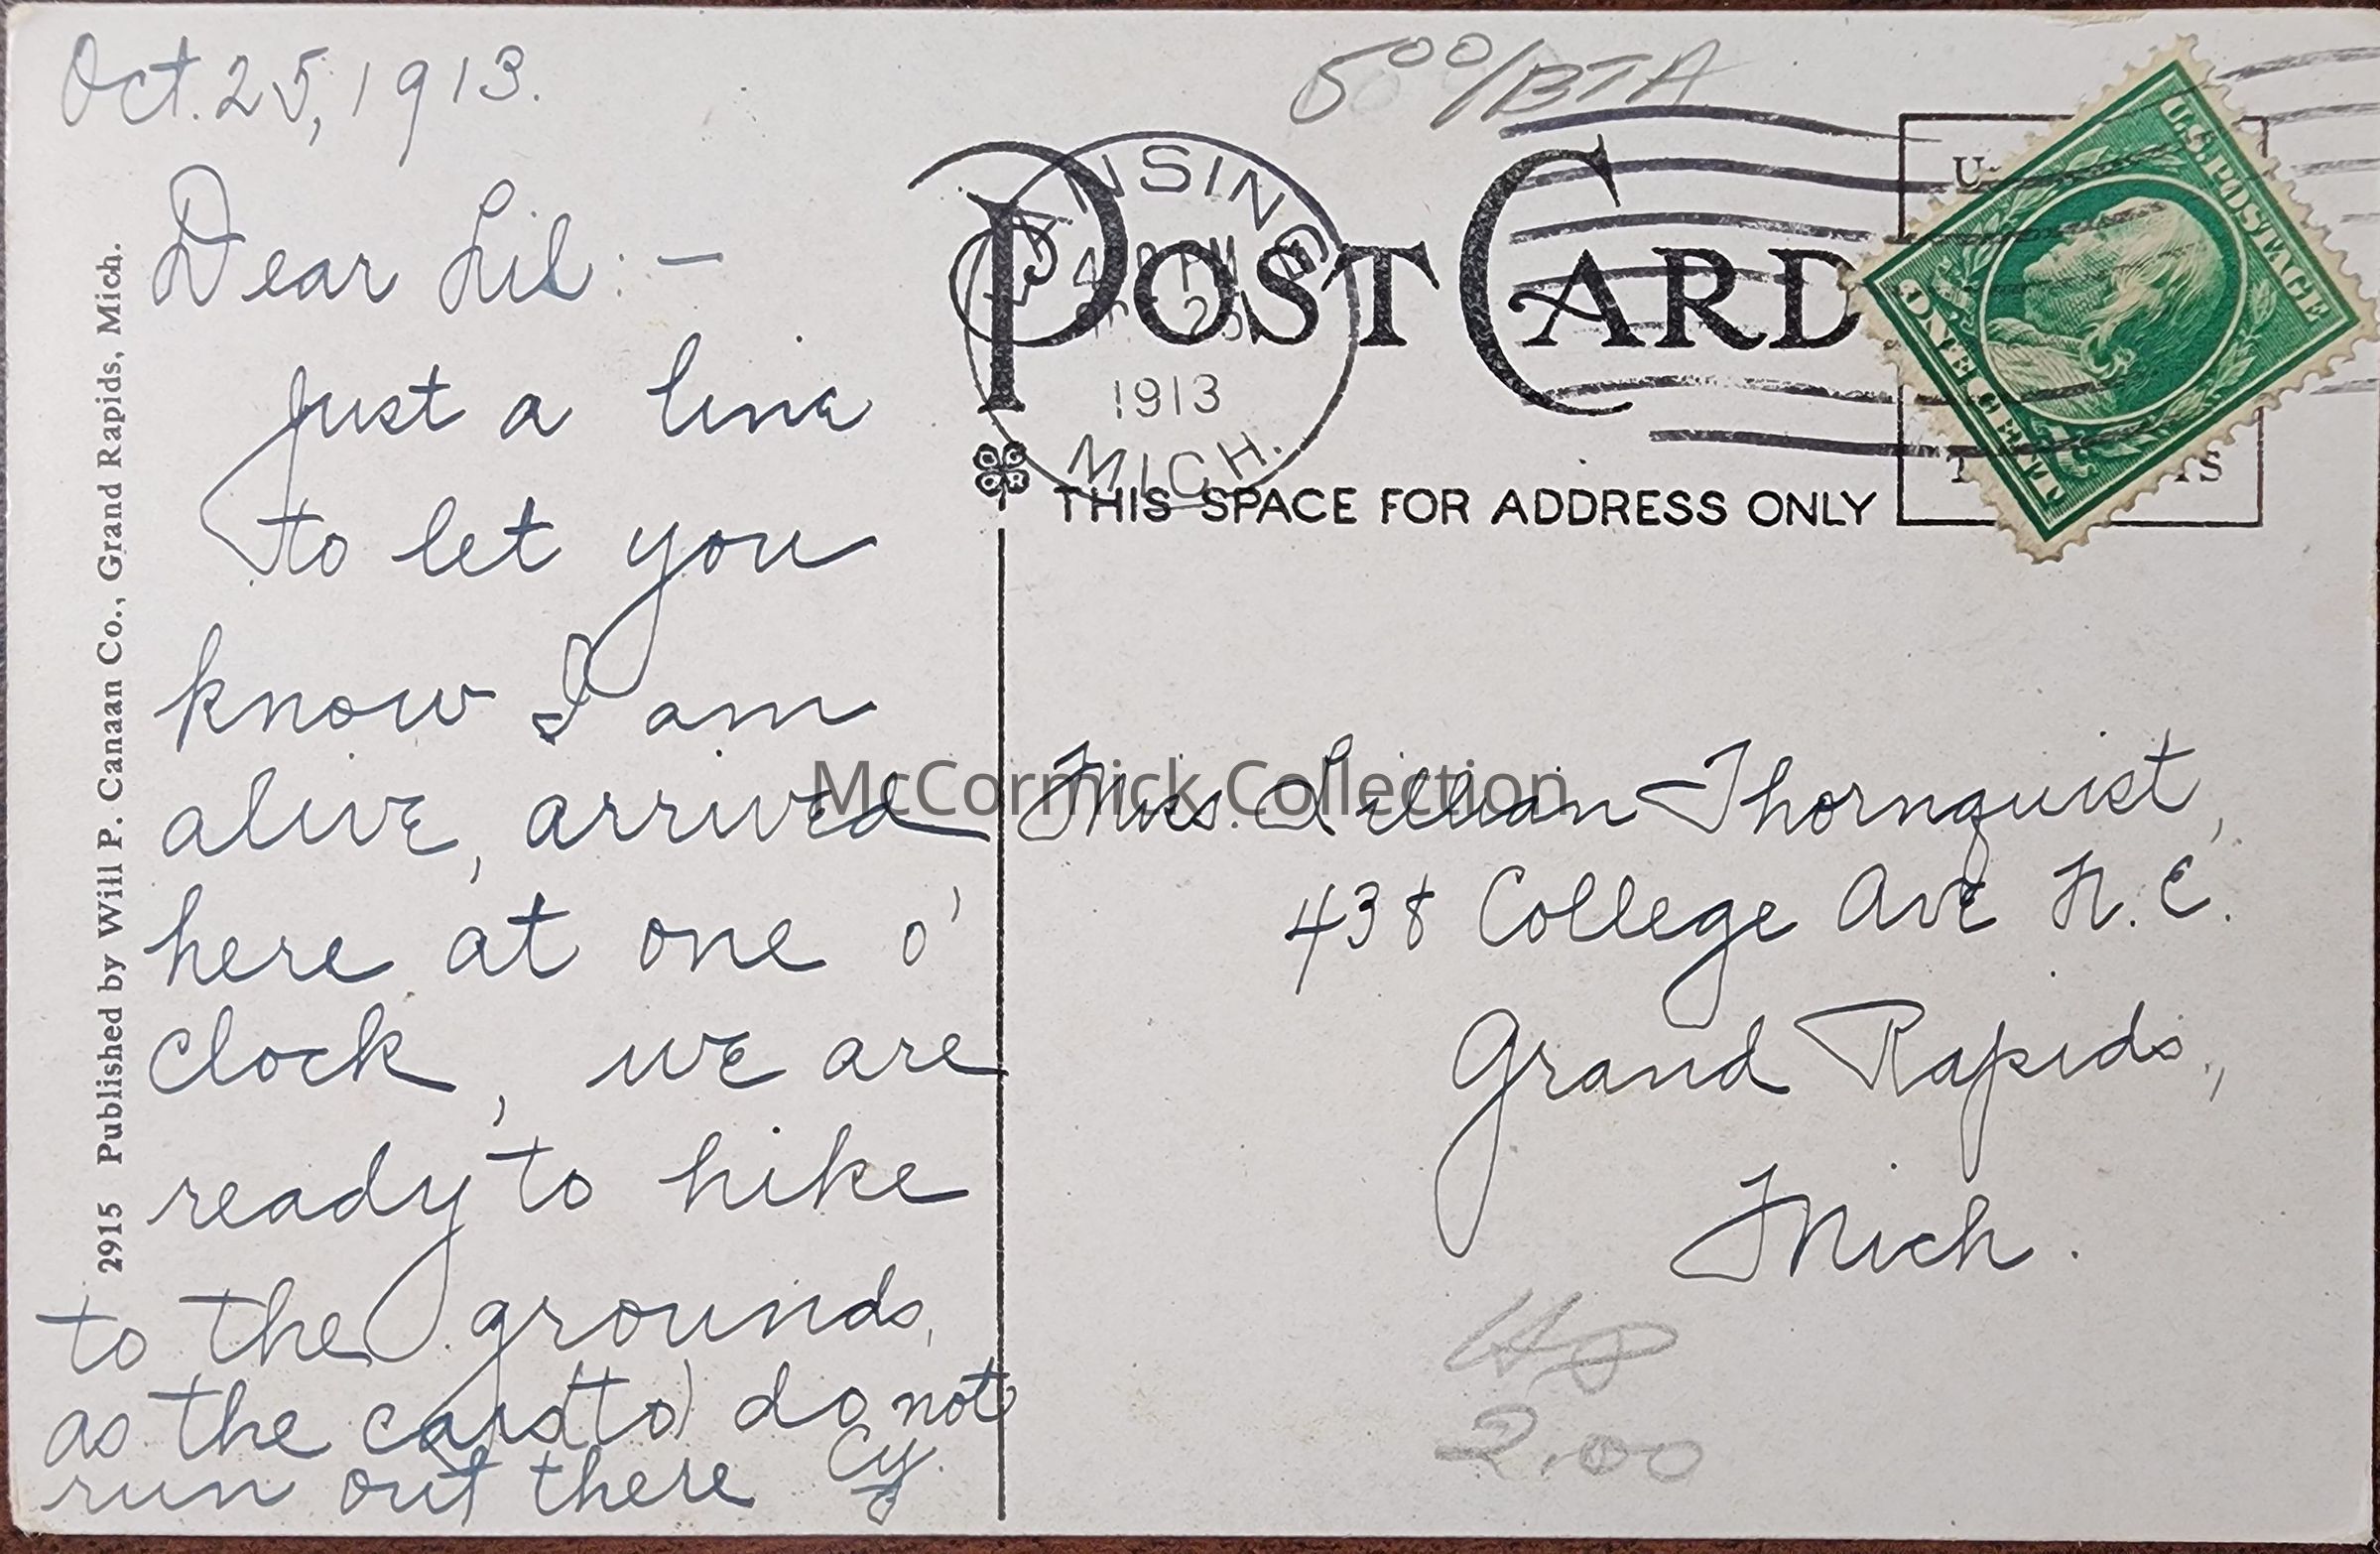 Oct. 25, 1913.
Dear Lil: —
Just a line
to let you
know I am
alive, arrived
here at one o'
clock, we are
ready to hike
to the grounds,
as the cars (to) do not
run out there Cy.
2915 Published by Will P. Canaan Co., Grand Rapids, Mich.
5 00/BTA
POST CARD
LANSING
4 PM
25
1913
MICH.
U.S. POSTAGE
ONE CENT
THIS SPACE FOR ADDRESS ONLY
McCormick Collection
Miss. Lillian Thornquist,
438 College Ave N. E.
Grand Rapids,
Mich.
2.00